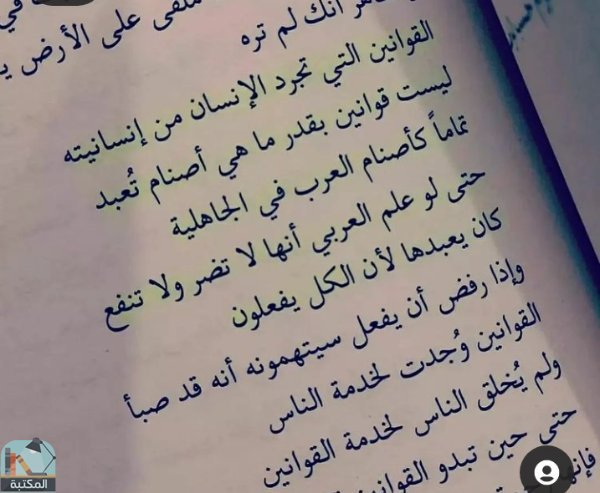 أنك لم تره
القوانين التي تجرد الإنسان من إنسانيته
ليست قوانين بقدر ما هي أصنام تُعبد
تماماً كأصنام العرب في الجاهلية
حتى لو علم العربي أنها لا تضر ولا تنفع
كان يعبدها لأن الكل يفعلون
وإذا رفض أن يفعل سيتهمونه أنه قد صبأ
القوانين وُجدت لخدمة الناس
ولم يُخلق الناس لخدمة القوانين
حتى حين تبدو
المكتبة